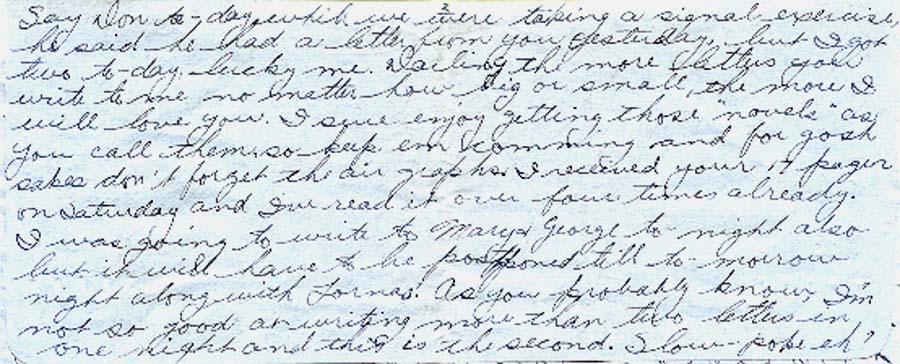 Say Don to-day while we were taking a signal exercise,
he said he had a letter from you yesterday, but I got
two to-day. lucky me. Darling the more letters you
write to me no matter how big or small, the more I
will love you. I sure enjoy getting those "novels" as
you call them, so keep em comming and for gosh
sakes don't forget the air graphs. I received your 17 pager
on Saturday and I've read it over four times already.
I was going to write to Mary & George to-night also
but it will have to be postponed till to-morrow
night along with Lornas. As you probably know, I'm
not so good at writing more than two letters in
one night and this is the second. Slow-poke eh?